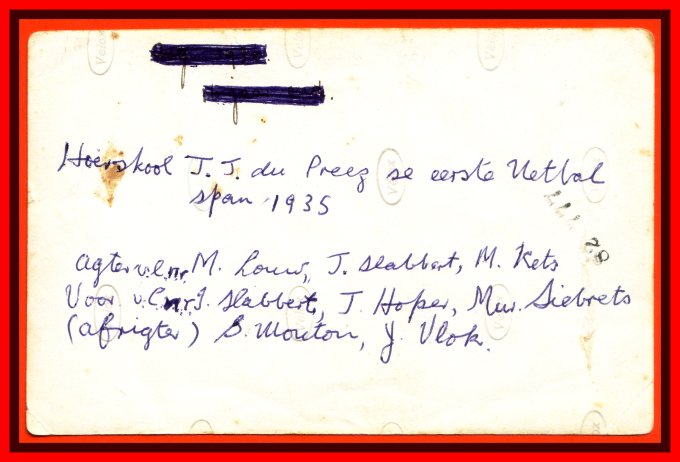 Hoërskool J. J. du Preez se eerste Netbal
span 1935
Agter v.l.n.r. M. Louw, J. Slabbert, M. Kets
Voor v.l.n.r. J. Slabbert, J. Hoper, Mur. Siebrets
(afrigter) S. Mouton, J. Vlok.
78
Velox